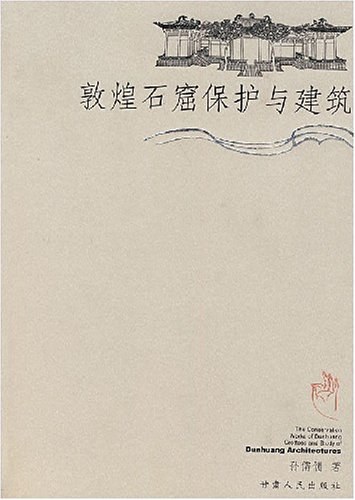 敦煌石窟保护与建筑
The Conservation
Works of Dunhuang
Grottoes and Study of
Dunhuang Architectures
孙儒僩 著
甘肃人民出版社